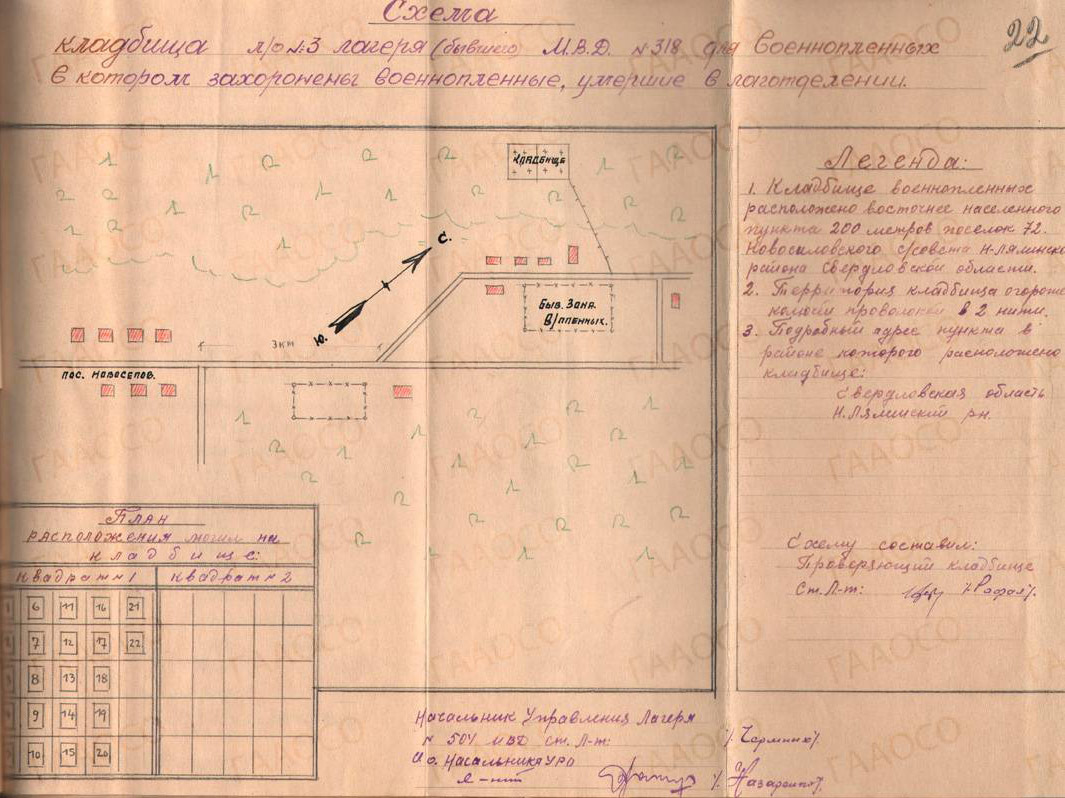 22
Схема
кладбища л/о №3 лагеря (бывшего) М.В.Д. №318 для военнопленных
в котором захоронены военнопленные, умершие в лаготделении.
кладбище
С.
Ю.
3 км
Быв. Зона
В/пленных.
пос. Новоселов.
Легенда:
1. Кладбище военнопленных
расположено восточнее населенного
пункта 200 метров поселок 72.
Новоселовского с/совета Н-Лялинско
района Свердловской области.
2. Территория кладбища огороже
в 2 нити.
3. Подробный адрес пункта в
районе которого расположено
кладбище:
Свердловская область
Н.Лялинский рн.
Схему составил:
Проверяющий кладбище
Ст. Л-т:
План
расположения могил на
кладбище:
Квадрат №1 Квадрат №2
1 6 11 16 21
2 7 12 17 22
3 8 13 18
4 9 14 19
5 10 15 20
Начальник Управления Лагеря
№ 504 МВД ст. Л-т:
И.о. Начальника УРО
Л-нт
/Назаренко/
ГААОСО